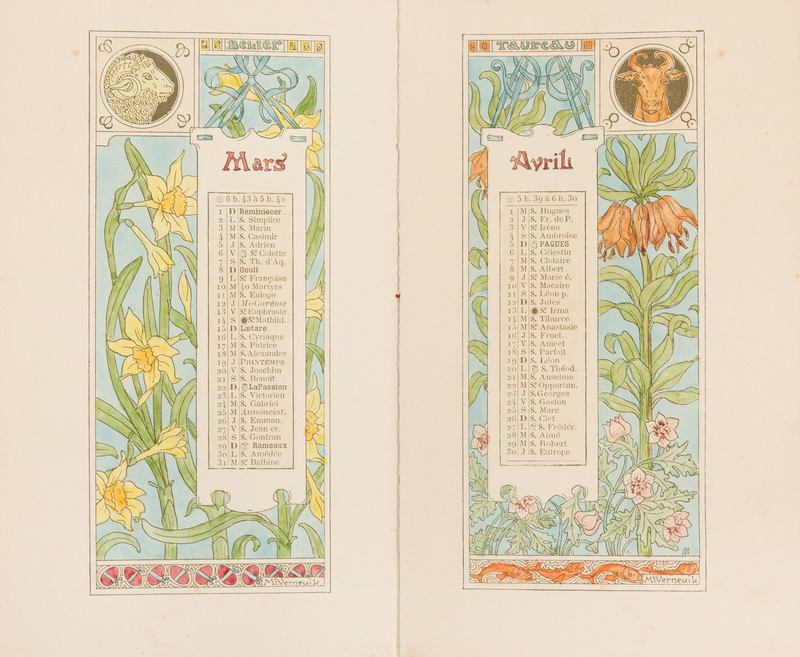 BELIER
Mars
6 h. 43 à 5 h. 42
1 D Reminiscer.
2 L S. Simplice
3 M S. Marin
4 M S. Casimir
5 J S. Adrien
6 V Ste Colette
7 S S. Th. d'Aq.
8 D Oculi
9 L Ste Françoise
10 M 40 Martyrs
11 M S. Euloge
12 J Mi-Carême
13 V Ste Euphrasie
14 S Ste Mathild.
15 D Lætare
16 L S. Cyriaque
17 M S. Patrice
18 M S. Alexandre
19 J PRINTEMPS
20 V S. Joachim
21 S S. Benoît
22 D La Passion
23 L S. Victorien
24 M S. Gabriel
25 M Annonciat.
26 J S. Emman.
27 V S. Jean er.
28 S S. Gontran
29 D Rameaux
30 L S. Amédée
31 M Ste Balbine
MPVerneuil
TAUREAU
Avril
5 h. 39 à 6 h. 30
1 M S. Hugues
2 J S. Fr. de P.
3 V Ste Irène
4 S S. Ambroise
5 D PAQUES
6 L S. Célestin
7 M S. Clotaire
8 M S. Albert
9 J Ste Marie é.
10 V S. Macaire
11 S S. Léon p.
12 D S. Jules
13 L Ste Irma
14 M S. Tiburce
15 M Ste Anastasie
16 J S. Fruct.
17 V S. Anicet
18 S S. Parfait
19 D S. Léon
20 L S. Théod.
21 M S. Anselme
22 M Ste Opportun.
23 J S. Georges
24 V S. Gaston
25 S S. Marc
26 D S. Clet
27 L S. Frédér.
28 M S. Aimé
29 M S. Robert
30 J S. Eutrope
MPVerneuil